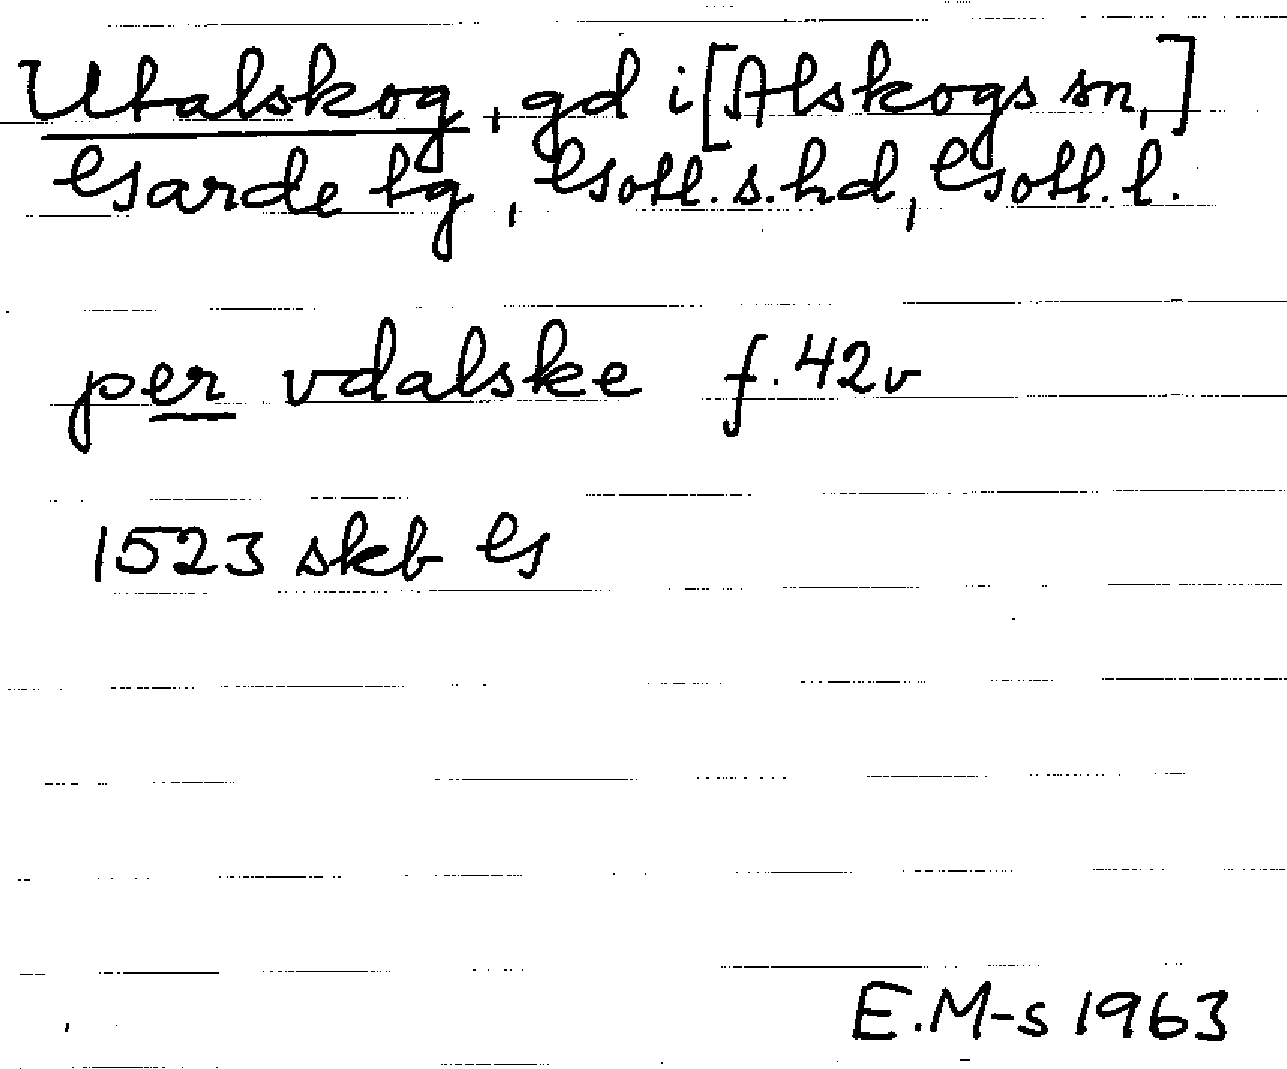 Utalskog, gd i [Alskogs sn,]
Garde tg, Gotl. s. hd, Gotl. l.
per vdalske f. 42v
1523 skb G
E.M-s 1963